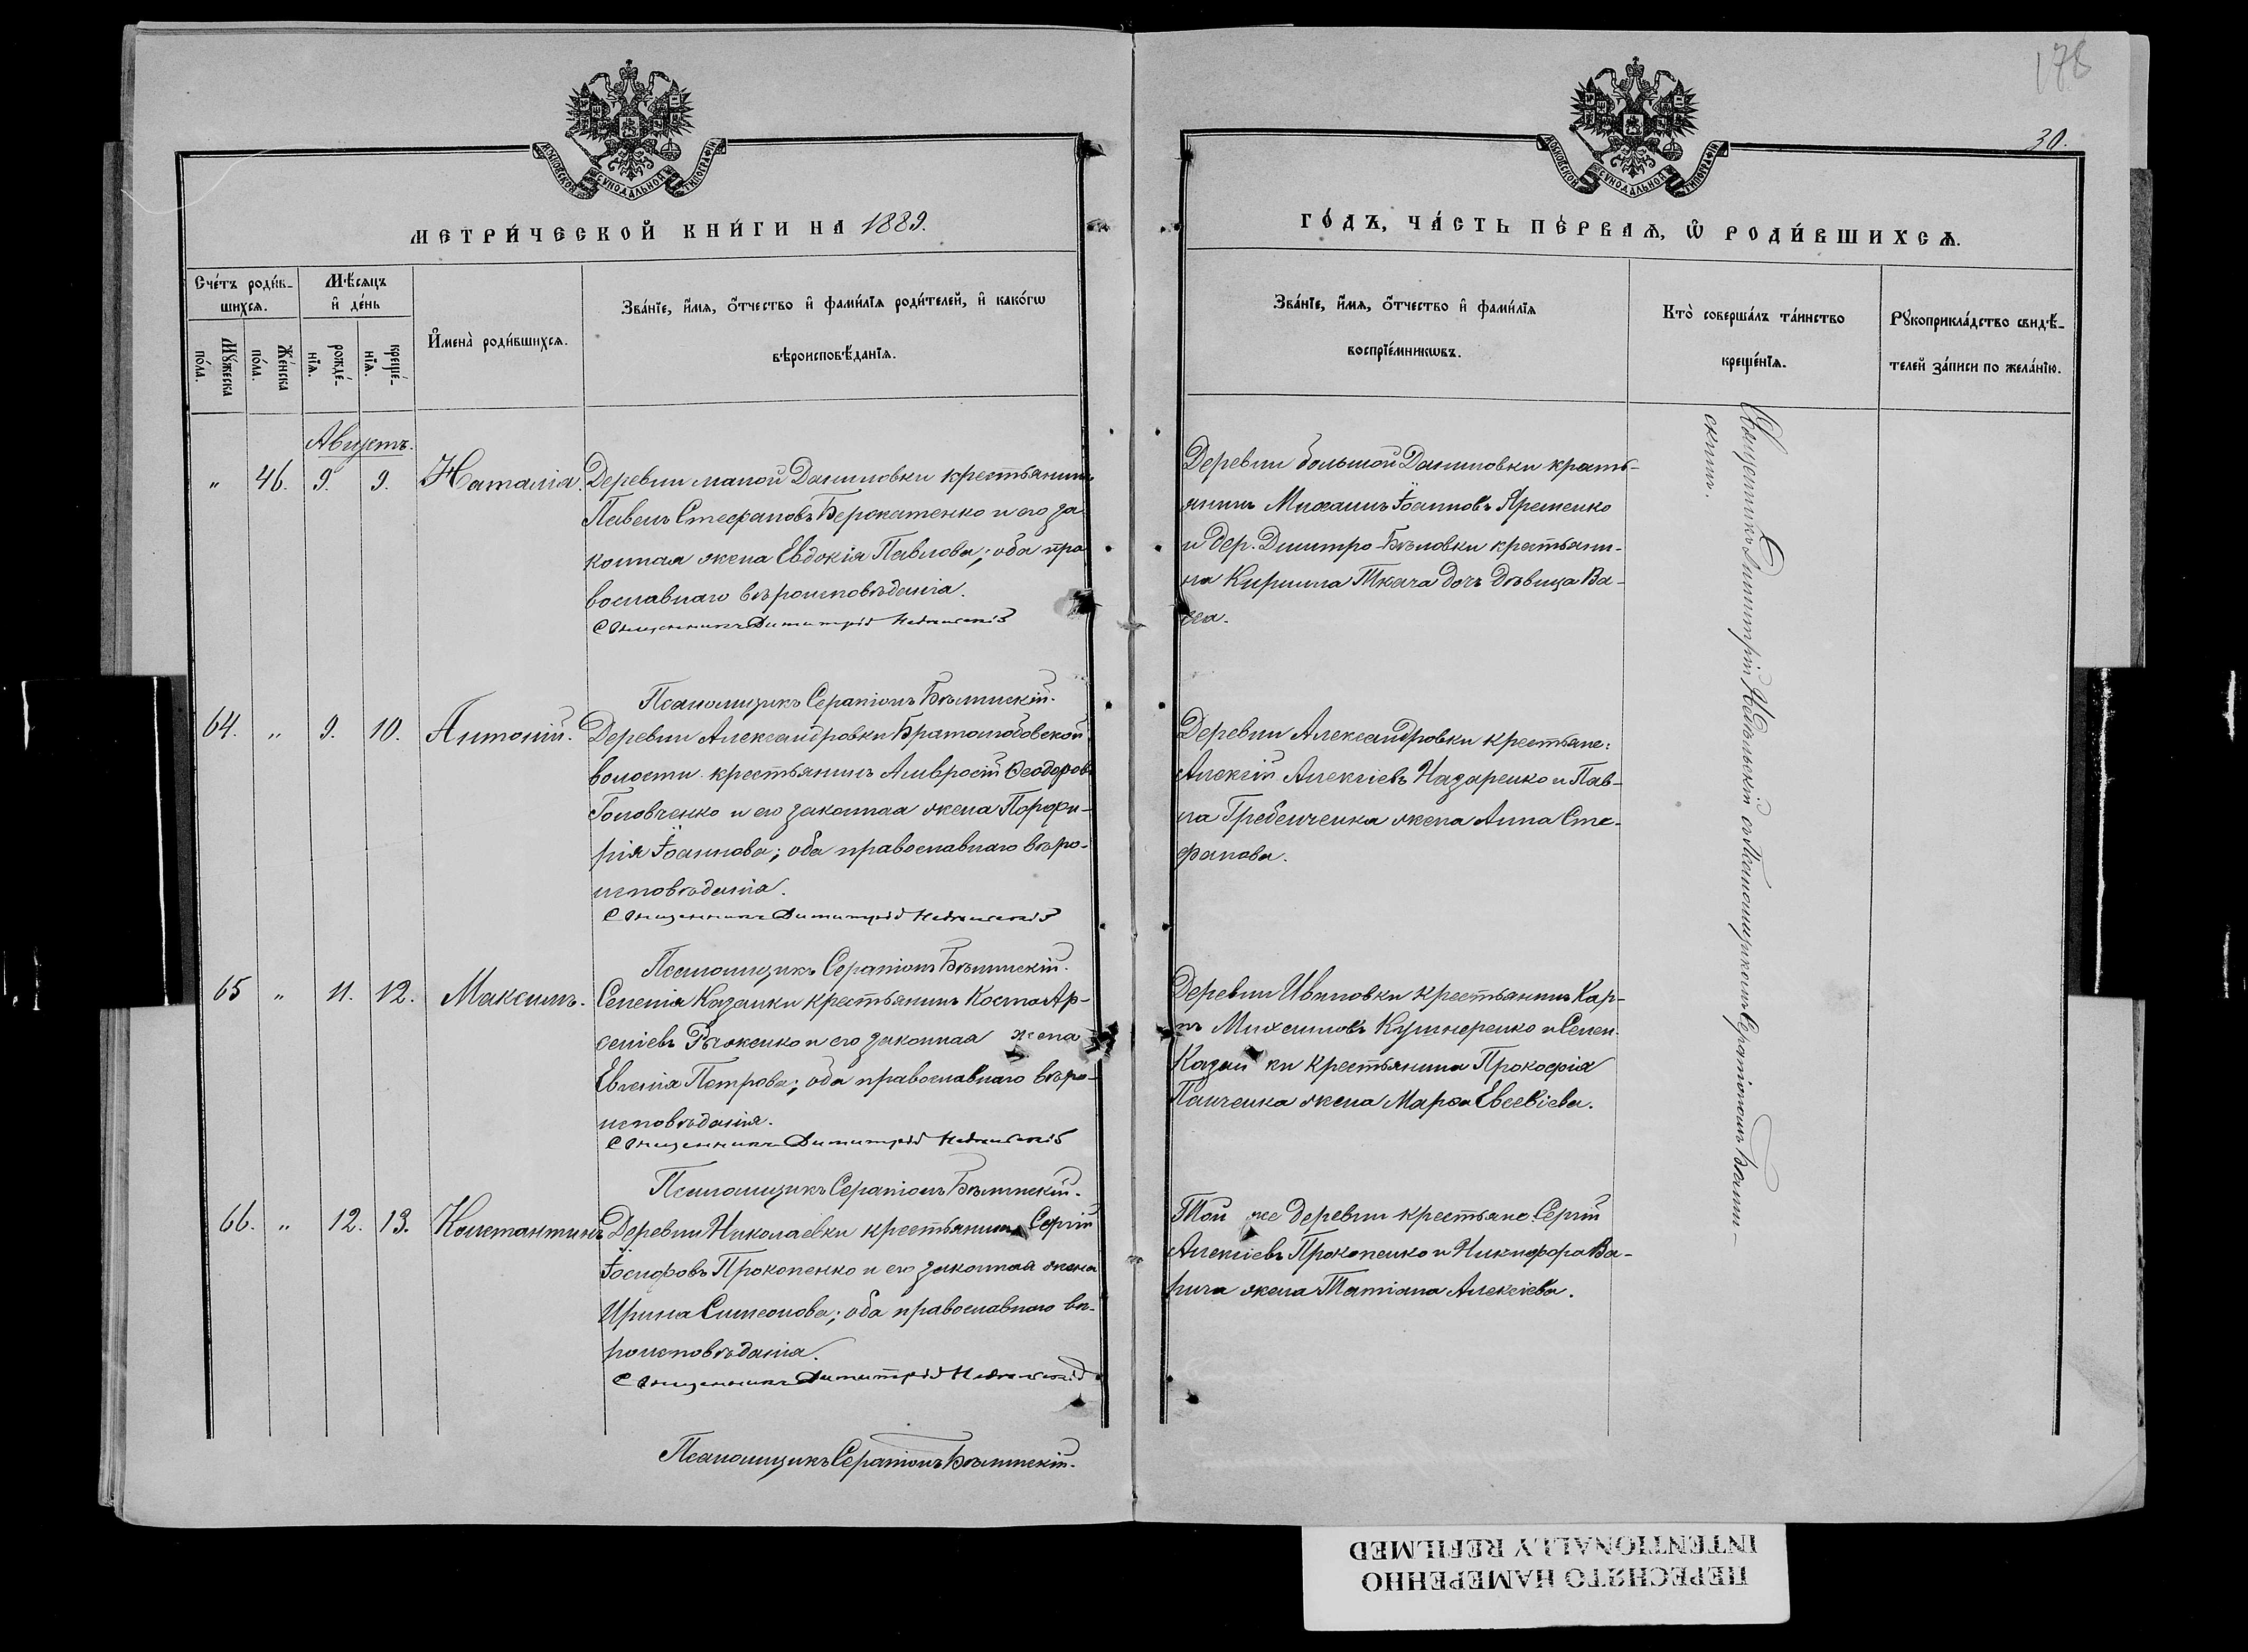 178
30.
МОСКОВСКОЙ СѴНОДАЛЬНОЙ ТИПОГРАФІИ
МОСКОВСКОЙ СѴНОДАЛЬНОЙ ТИПОГРАФІИ
МЕТРИ́ЧЕСКОЙ КНИ́ГИ НА 1889.
ГО́ДЪ, ЧА́СТЬ ПЕ́РВАѦ, Ѡ҆ РОДИ́ВШИХСѦ.
Сче́тъ роди́в-
шихсѧ.
Мꙋ́жеска по́ла.
Же́нска по́ла.
Мѣ́сѧцъ
и҆ де́нь
рожде́-
нїѧ.
креще́-
нїѧ.
И҆мена̀ роди́вшихсѧ.
Зва́нїе, и҆́мѧ, ѻ҆́тчество и҆ фами́лїѧ роди́телей, и҆ како́гѡ
вѣроисповѣ́данїѧ.
Зва́нїе, и҆́мѧ, ѻ҆́тчество и҆ фами́лїѧ
воспрїе́мникѡвъ.
Кто̀ соверша́лъ та́инство
креще́нїѧ.
Рꙋкоприкла́дство свидѣ́-
телей за́писи по жела́нїю.
Августъ.
" 46. 9. 9. Наталія.
Деревни малой Даниловки крестьянинъ
Павелъ Стефановъ и его за
конная жена Евдокія Павлова; оба пра
вославнаго вѣроисповѣданія.
Священникъ Димитрій
Псаломщикъ Серапіонъ
Деревни большой Даниловки кресть-
янинъ Михаилъ Іоанновъ Яременко
и дер. Дмитро-Бѣловки крестьяни-
на Кирилла Ткача дочь дѣвица Ва-
64. " 9. 10. Антоній.
Деревни Александровки Братолюбовской
волости крестьянинъ Амвросій Ѳеодоровъ
Головченко и его законная жена Порфи-
рія Іоаннова; оба православнаго вѣро-
исповѣданія.
Священникъ Димитрій
Псаломщикъ Серапіонъ
Деревни Александровки крестьяне:
Алексій Алексіевъ Назаренко и Пав-
ла Гребенченка жена Анна Сте-
фанова.
65 " 11. 12. Максимъ.
Селенія Казанки крестьянинъ Косма Ар-
сеніевъ Рыженко и его законная жена
Евгенія Петрова; оба православнаго вѣро-
исповѣданія.
Священникъ Димитрій
Псаломщикъ Серапіонъ
Деревни Ивановки крестьянинъ Кар-
пъ Михаиловъ Кушнеренко и Селен.
Казанки крестьянина Прокофія
Панченка жена Марѳа Евсевіева.
66. " 12. 13. Константинъ
Деревни Николаевки крестьянинъ Сергій
Іосифовъ Прокопенко и его законная жена
Ирина Симеонова; оба православнаго вѣ-
роисповѣданія.
Священникъ Димитрій
Псаломщикъ Серапіонъ
Той же деревни крестьяне Сергій
Алексіевъ Прокопенко и Никифора Ва-
рича жена Татіана Алексіева.
Священникъ Димитрій съ Псаломщикомъ Серапіономъ
скимъ.
ПЕРЕСНЯТО НАМЕРЕННО
INTENTIONALLY REFILMED